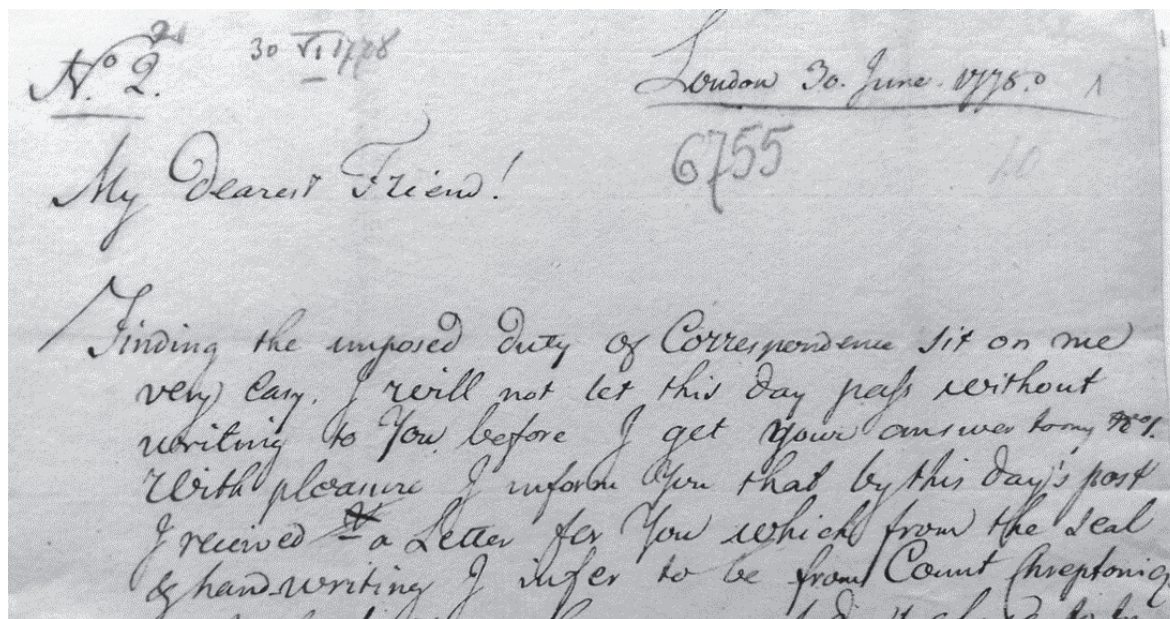 No 2.
30 VI 1778
London 30. June. 1778.
6755
My Dearest Friend!
Finding the imposed duty of Correspondence sit on me
very easy. I will not let this day pass without
writing to You before I get your answer to my No 1.
With pleasure I inform You that by this day's post
I received a Letter for You which from the Seal
& hand-writing I infer to be from Count Chreptowic